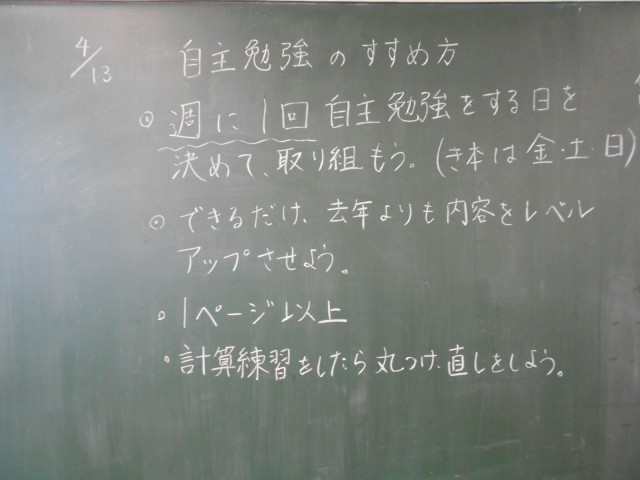 4/13 自主勉強のすすめ方
◦週に1回自主勉強をする日を
決めて、取り組もう。(き本は金・土・日)
◦できるだけ、去年よりも内容をレベル
アップさせよう。
◦1ページ以上
◦計算練習をしたら丸つけ、直しをしよう。